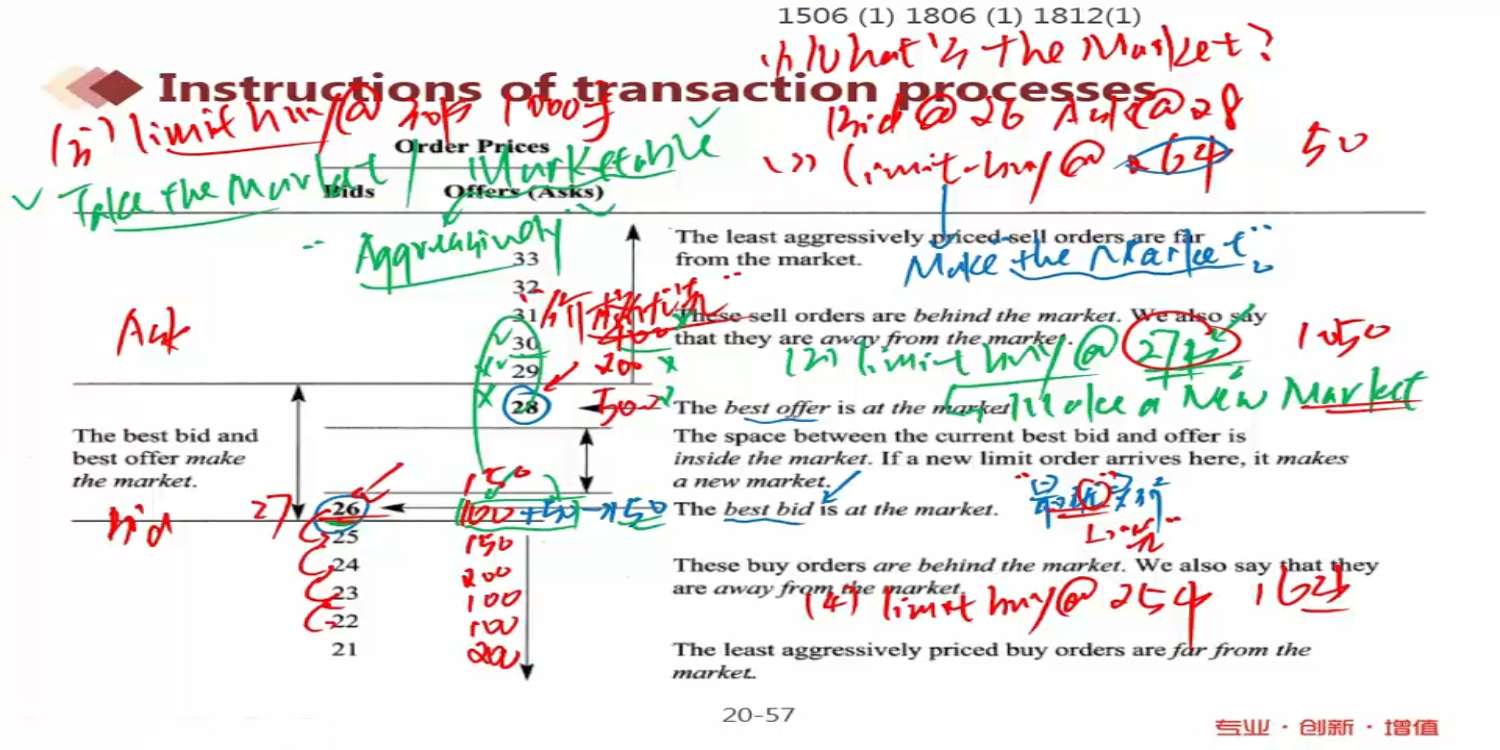 1506 (1) 1806 (1) 1812(1)
(1) What's the Market?
Instructions of transaction processes
Bid @ 26 Ask @ 28
(3) limit buy @
Order Prices
limit-buy @ 50
Take the Market / Marketable
Bids Offers (Asks)
Aggressively
33
The least aggressively priced sell orders are far
from the market.
Make the Market
32
31
These sell orders are behind the market. We also say
that they are away from the market.
Ask
30 400
29 200
(2) limit buy @ 27
Make a New Market
28 50
The best offer is at the market.
The best bid and
best offer make
the market.
The space between the current best bid and offer is
inside the market. If a new limit order arrives here, it makes
a new market.
150
27 26 100 +50 → 150
The best bid is at the market.
Bid
25 150
24 200
These buy orders are behind the market. We also say that they
are away from the market.
23 100
(4) limit buy @ 25
22 100
21 200
The least aggressively priced buy orders are far from the
market.
20-57
专业 · 创新 · 增值